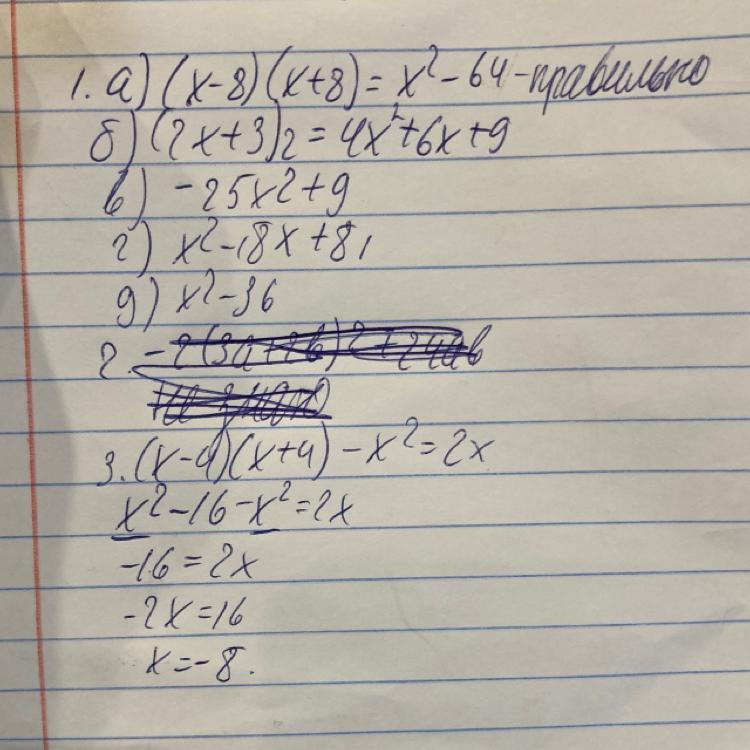 1. а) (x-8)(x+8) = x² - 64 - правильно
б) (2x+3)2 = 4x²+6x+9
в) -25x2+9
г) x²-18x+81
д) x²-36
2. -2(3a+2b)²+24ab
3. (x-4)(x+4) - x² = 2x
x²-16-x²=2x
-16=2x
-2x=16
x=-8.